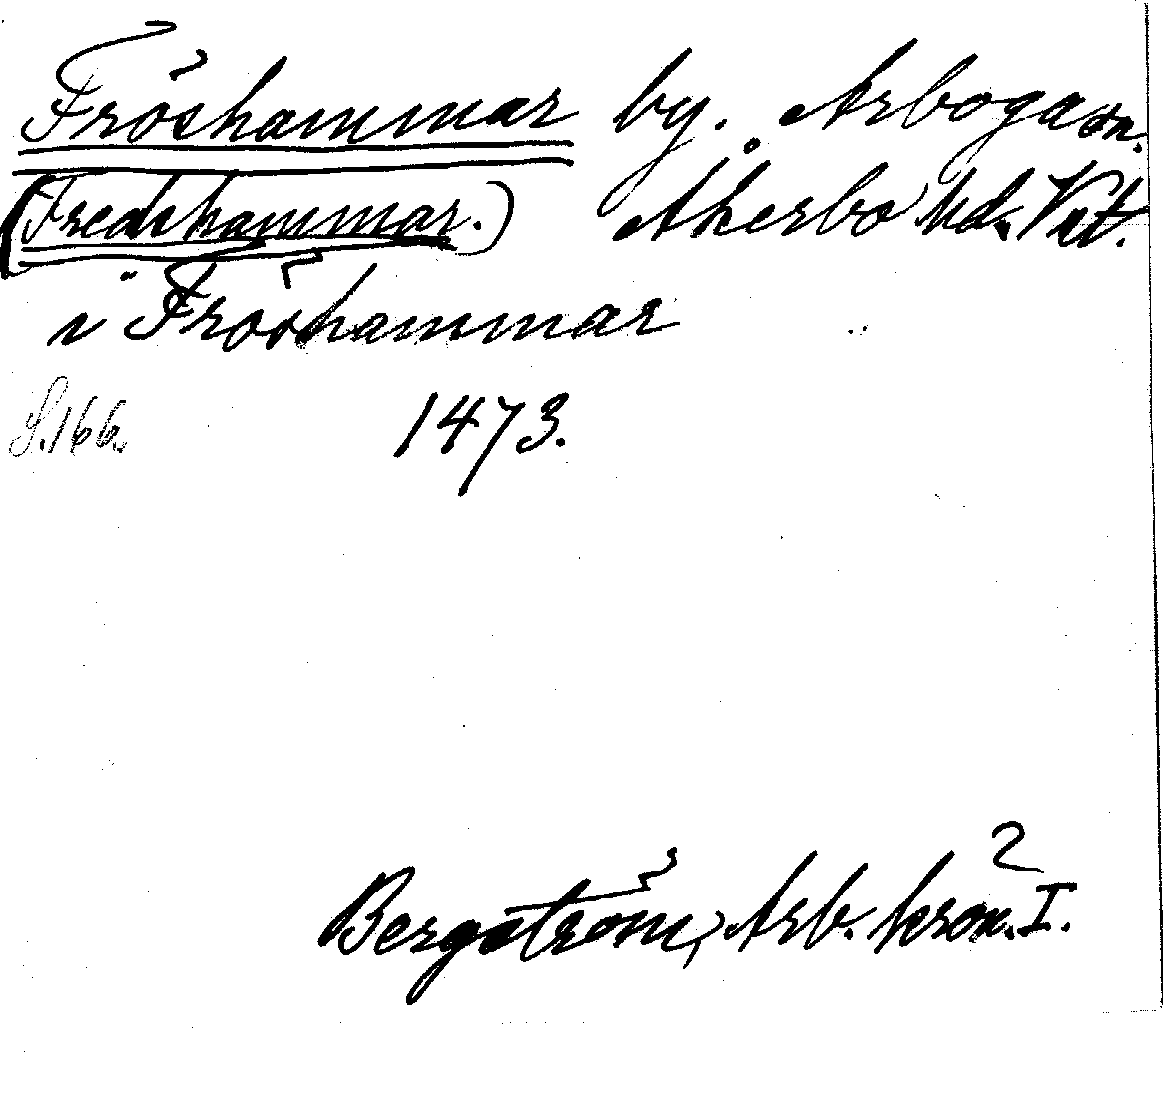 Fröshammar by. Arboga sn.
(Fredshammar.) Åkerbo hd. Vstl.
i Fröshammar
S.166. 1473.
Bergström, Arb. krön.² I.